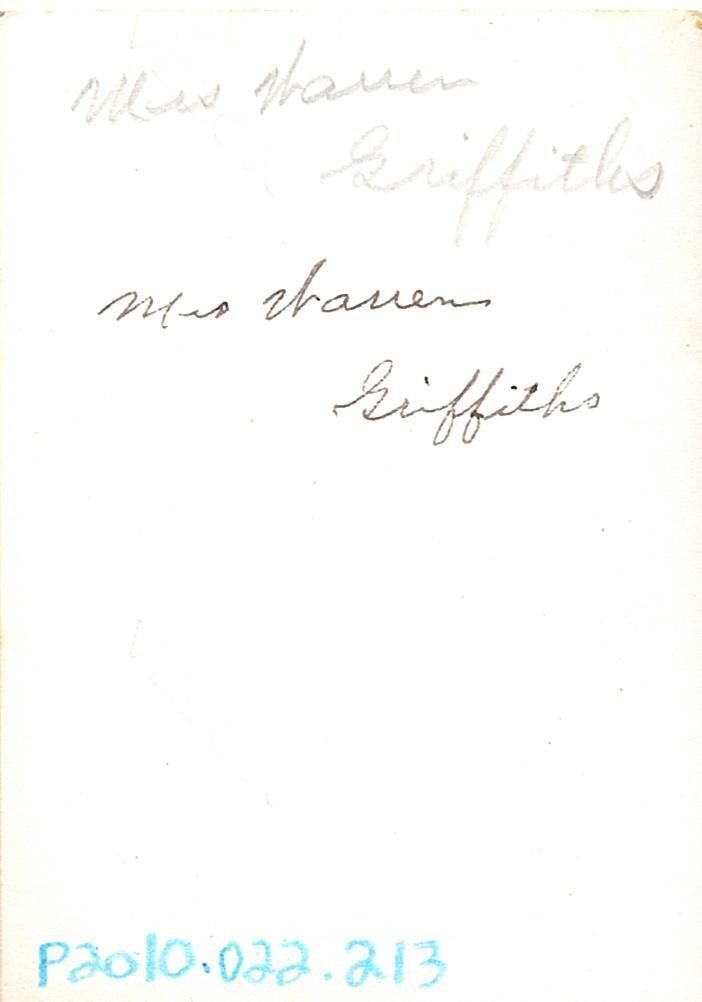 Mrs Warren
Griffiths
Mrs Warren
Griffiths
P2010.022.213